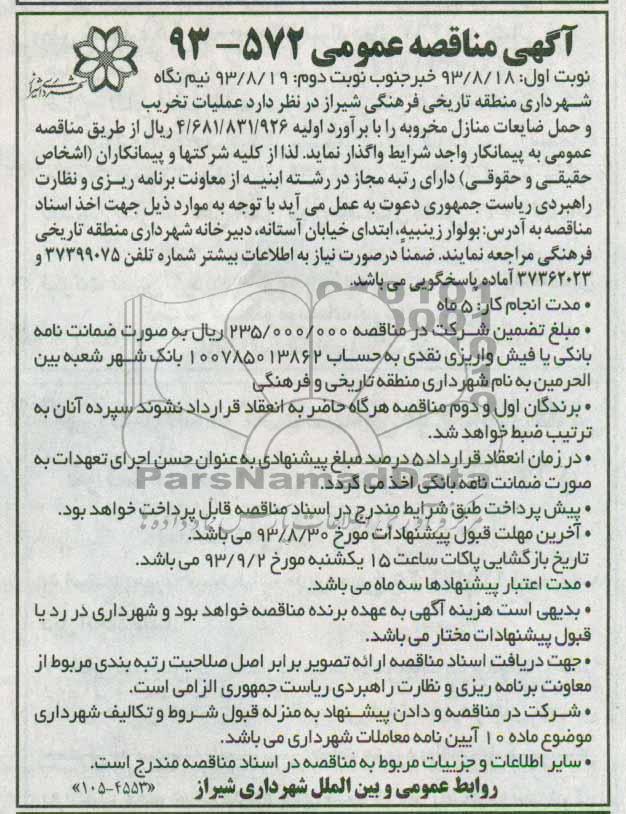 آگهی مناقصه عمومی ۵۷۲-۹۳
شهرداری شیراز
نوبت اول: ۹۳/۸/۱۸ خبرجنوب نوبت دوم: ۹۳/۸/۱۹ نیم نگاه
شهرداری منطقه تاریخی فرهنگی شیراز در نظر دارد عملیات تخریب
و حمل ضایعات منازل مخروبه را با برآورد اولیه ۴/۶۸۱/۸۳۱/۹۲۶ ریال از طریق مناقصه
عمومی به پیمانکار واجد شرایط واگذار نماید. لذا از کلیه شرکتها و پیمانکاران (اشخاص
حقیقی و حقوقی) دارای رتبه مجاز در رشته ابنیه از معاونت برنامه ریزی و نظارت
راهبردی ریاست جمهوری دعوت به عمل می آید با توجه به موارد ذیل جهت اخذ اسناد
مناقصه به آدرس: بولوار زینبیه، ابتدای خیابان آستانه، دبیرخانه شهرداری منطقه تاریخی
فرهنگی مراجعه نمایند. ضمناً درصورت نیاز به اطلاعات بیشتر شماره تلفن ۳۷۳۹۹۰۷۵ و
۳۷۳۶۲۰۲۳ آماده پاسخگویی می باشد.
• مدت انجام کار: ۵ ماه
• مبلغ تضمین شرکت در مناقصه ۲۳۵/۰۰۰/۰۰۰ ریال به صورت ضمانت نامه
بانکی یا فیش واریزی نقدی به حساب ۱۰۰۷۸۵۰۱۳۸۶۲ بانک شهر شعبه بین
الحرمین به نام شهرداری منطقه تاریخی و فرهنگی
• برندگان اول و دوم مناقصه هرگاه حاضر به انعقاد قرارداد نشوند سپرده آنان به
ترتیب ضبط خواهد شد.
• در زمان انعقاد قرارداد ۵ درصد مبلغ پیشنهادی به عنوان حسن اجرای تعهدات به
صورت ضمانت نامه بانکی اخذ می گردد.
ParsNamadData
• پیش پرداخت طبق شرایط مندرج در اسناد مناقصه قابل پرداخت خواهد بود.
• آخرین مهلت قبول پیشنهادات مورخ ۹۳/۸/۳۰ می باشد.
تاریخ بازگشایی پاکات ساعت ۱۵ یکشنبه مورخ ۹۳/۹/۲ می باشد.
• مدت اعتبار پیشنهادها سه ماه می باشد.
• بدیهی است هزینه آگهی به عهده برنده مناقصه خواهد بود و شهرداری در رد یا
قبول پیشنهادات مختار می باشد.
• جهت دریافت اسناد مناقصه ارائه تصویر برابر اصل صلاحیت رتبه بندی مربوط از
معاونت برنامه ریزی و نظارت راهبردی ریاست جمهوری الزامی است.
• شرکت در مناقصه و دادن پیشنهاد به منزله قبول شروط و تکالیف شهرداری
موضوع ماده ۱۰ آیین نامه معاملات شهرداری می باشد.
• سایر اطلاعات و جزییات مربوط به مناقصه در اسناد مناقصه مندرج است.
روابط عمومی و بین الملل شهرداری شیراز «۱۰۵-۴۵۵۳»